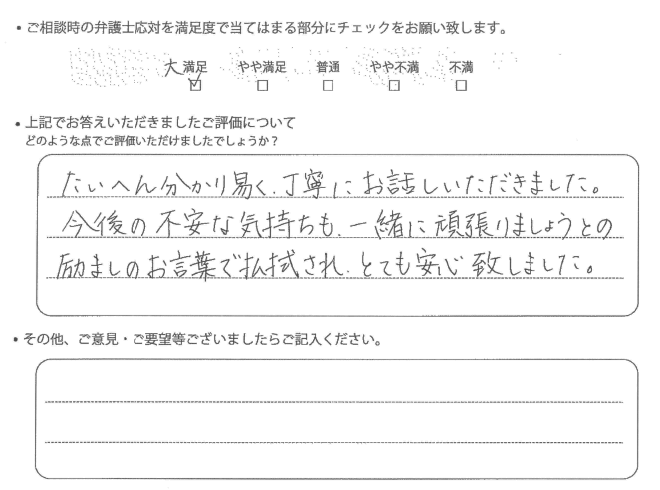 ・ご相談時の弁護士応対を満足度で当てはまる部分にチェックをお願い致します。
大満足 やや満足 普通 やや不満 不満
☑ □ □ □ □
・上記でお答えいただきましたご評価について
どのような点でご評価いただけましたでしょうか？
たいへん分かり易く、丁寧にお話しいただきました。
今後の不安な気持ちも、一緒に頑張りましょうとの
励ましのお言葉で払拭され、とても安心致しました。
・その他、ご意見・ご要望等ございましたらご記入ください。